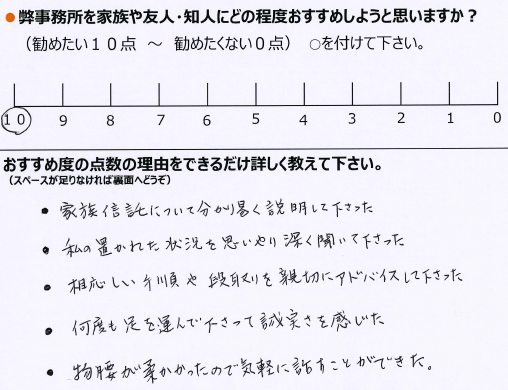 ●弊事務所を家族や友人・知人にどの程度おすすめしようと思いますか？
（勧めたい１０点　～　勧めたくない０点）　○を付けて下さい。
10 9 8 7 6 5 4 3 2 1 0
おすすめ度の点数の理由をできるだけ詳しく教えて下さい。
（スペースが足りなければ裏面へどうぞ）
・家族信託について分かり易く説明して下さった
・私の置かれた状況を思いやり深く聞いて下さった
・相応しい手順や段取りを親切にアドバイスして下さった
・何度も足を運んで下さって誠実さを感じた
・物腰が柔かかったので気軽に話すことができた。